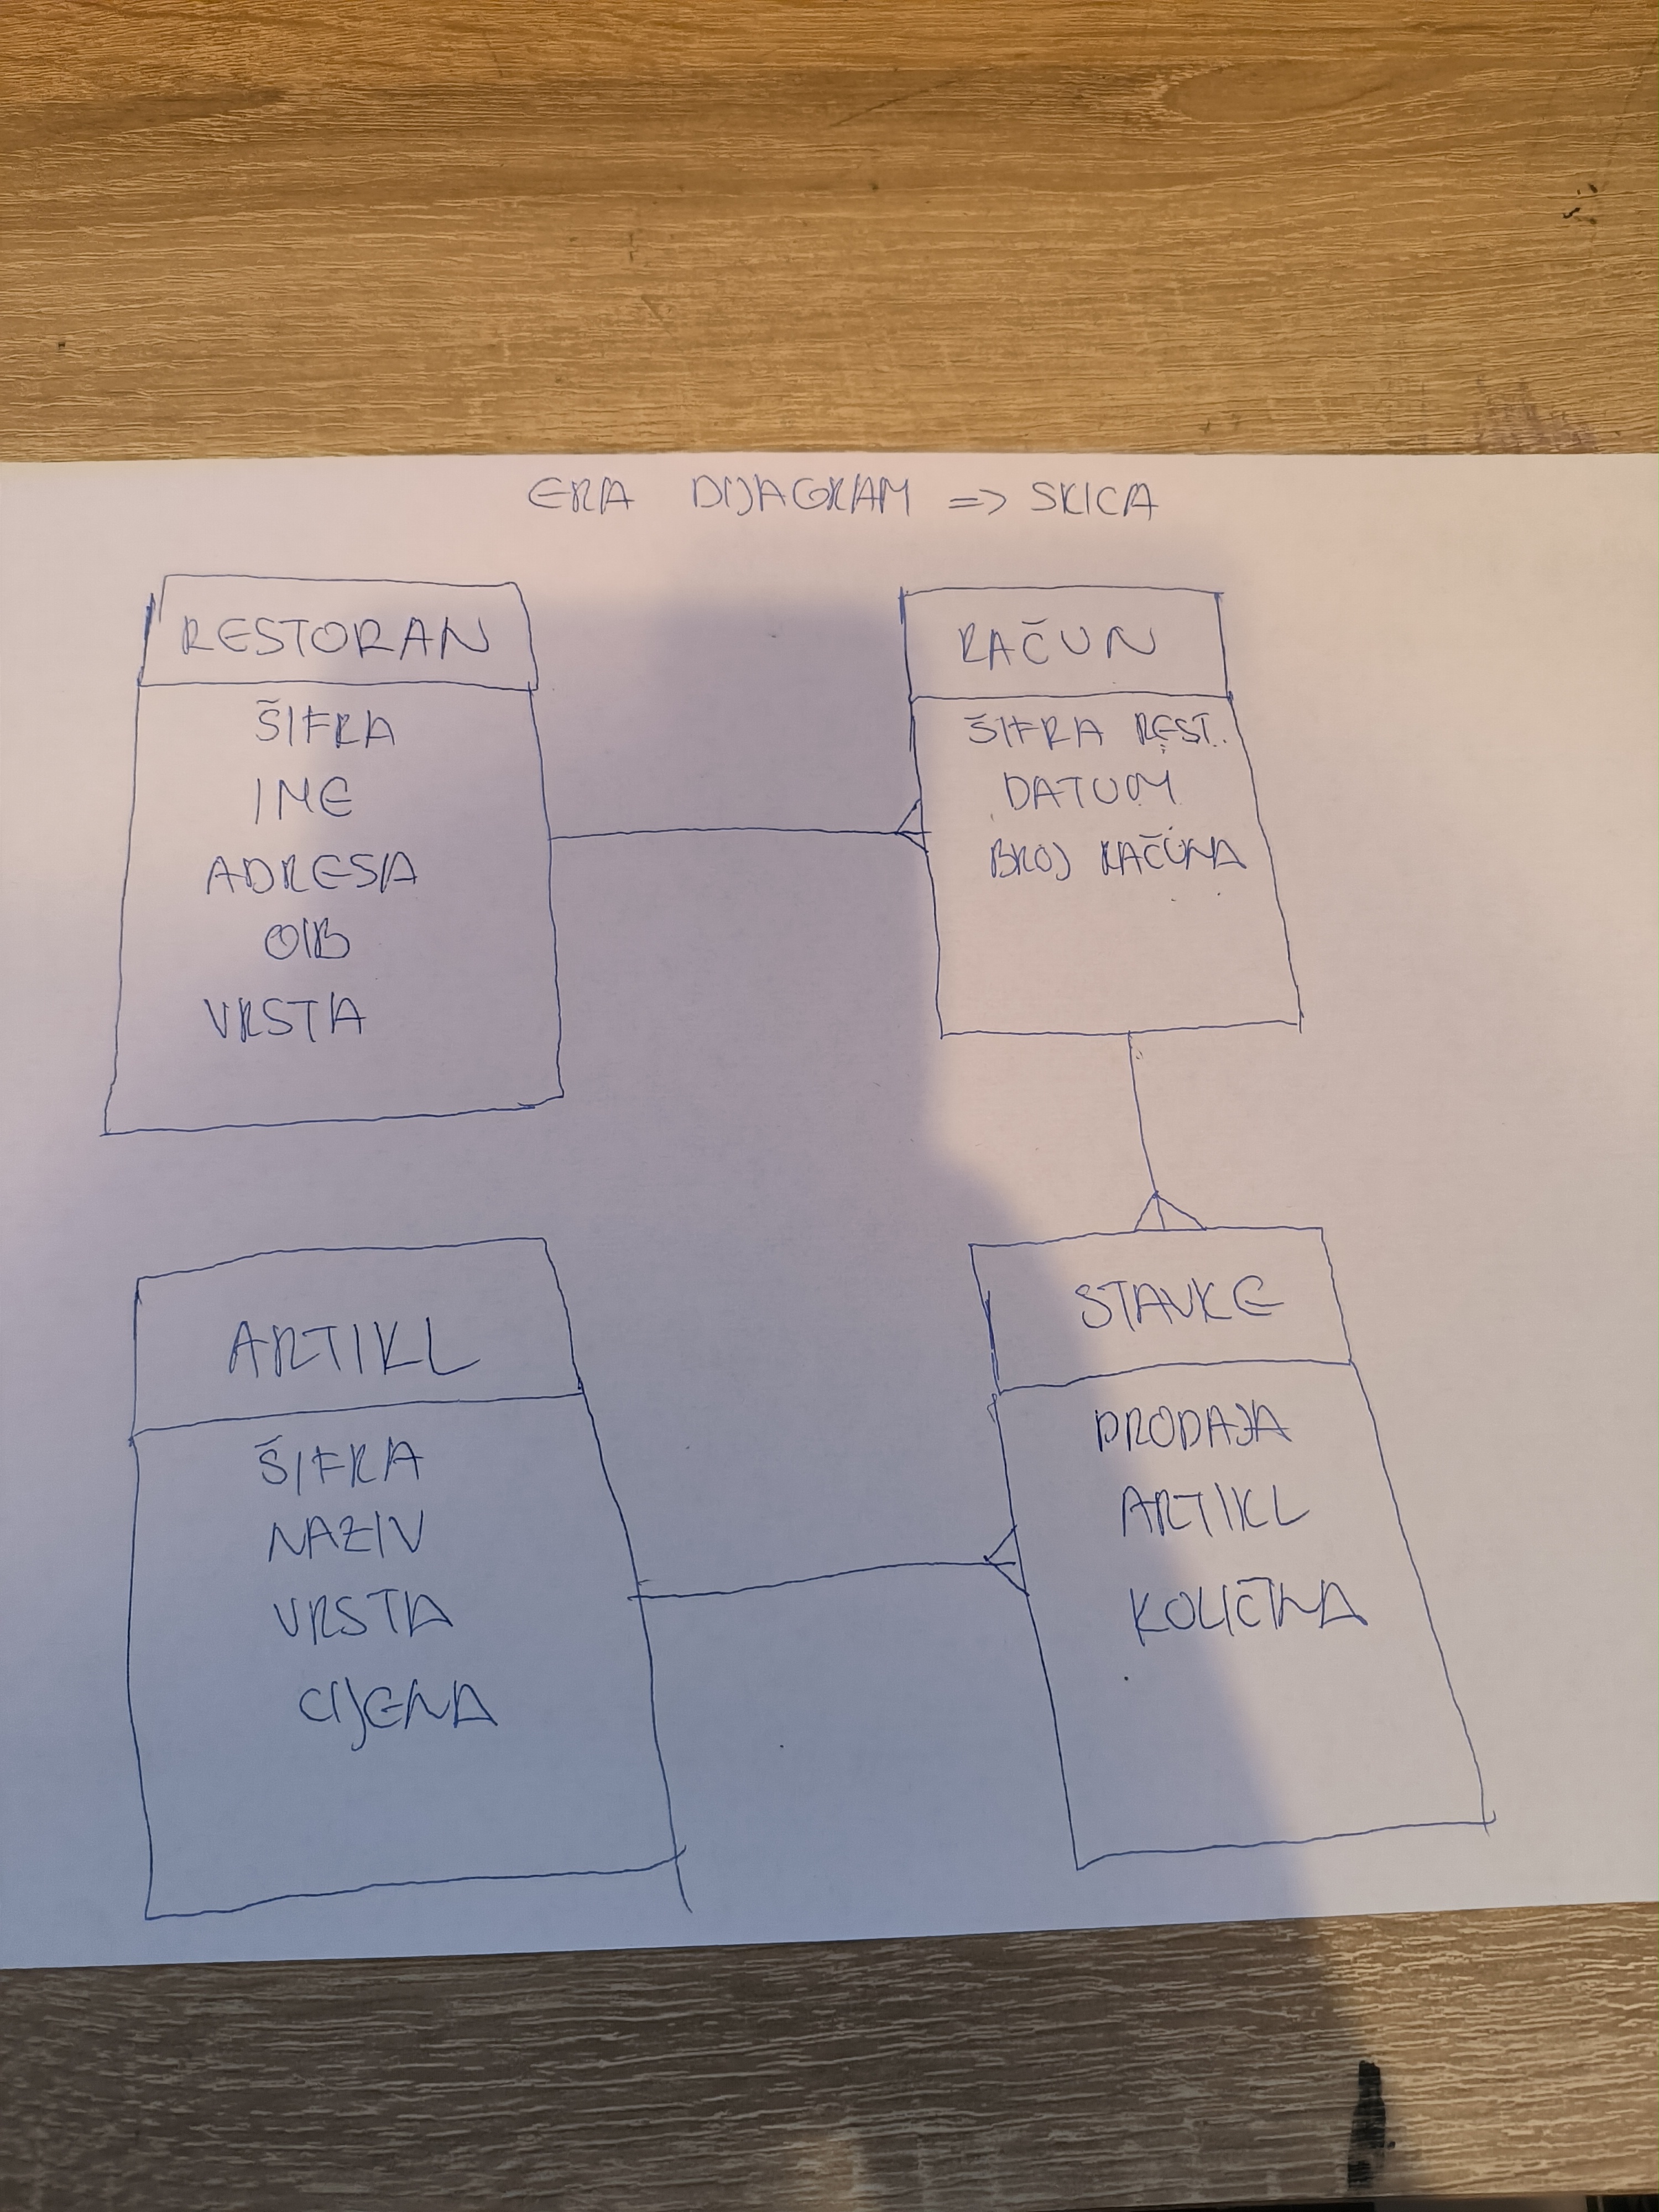 ERA DIJAGRAM => SKICA
RESTORAN
ŠIFRA
IME
ADRESA
OIB
VRSTA
RAČUN
ŠIFRA REST.
DATUM
BROJ RAČUNA
ARTIKL
ŠIFRA
NAZIV
VRSTA
CIJENA
STAVKE
PRODAJA
ARTIKL
KOLIČINA